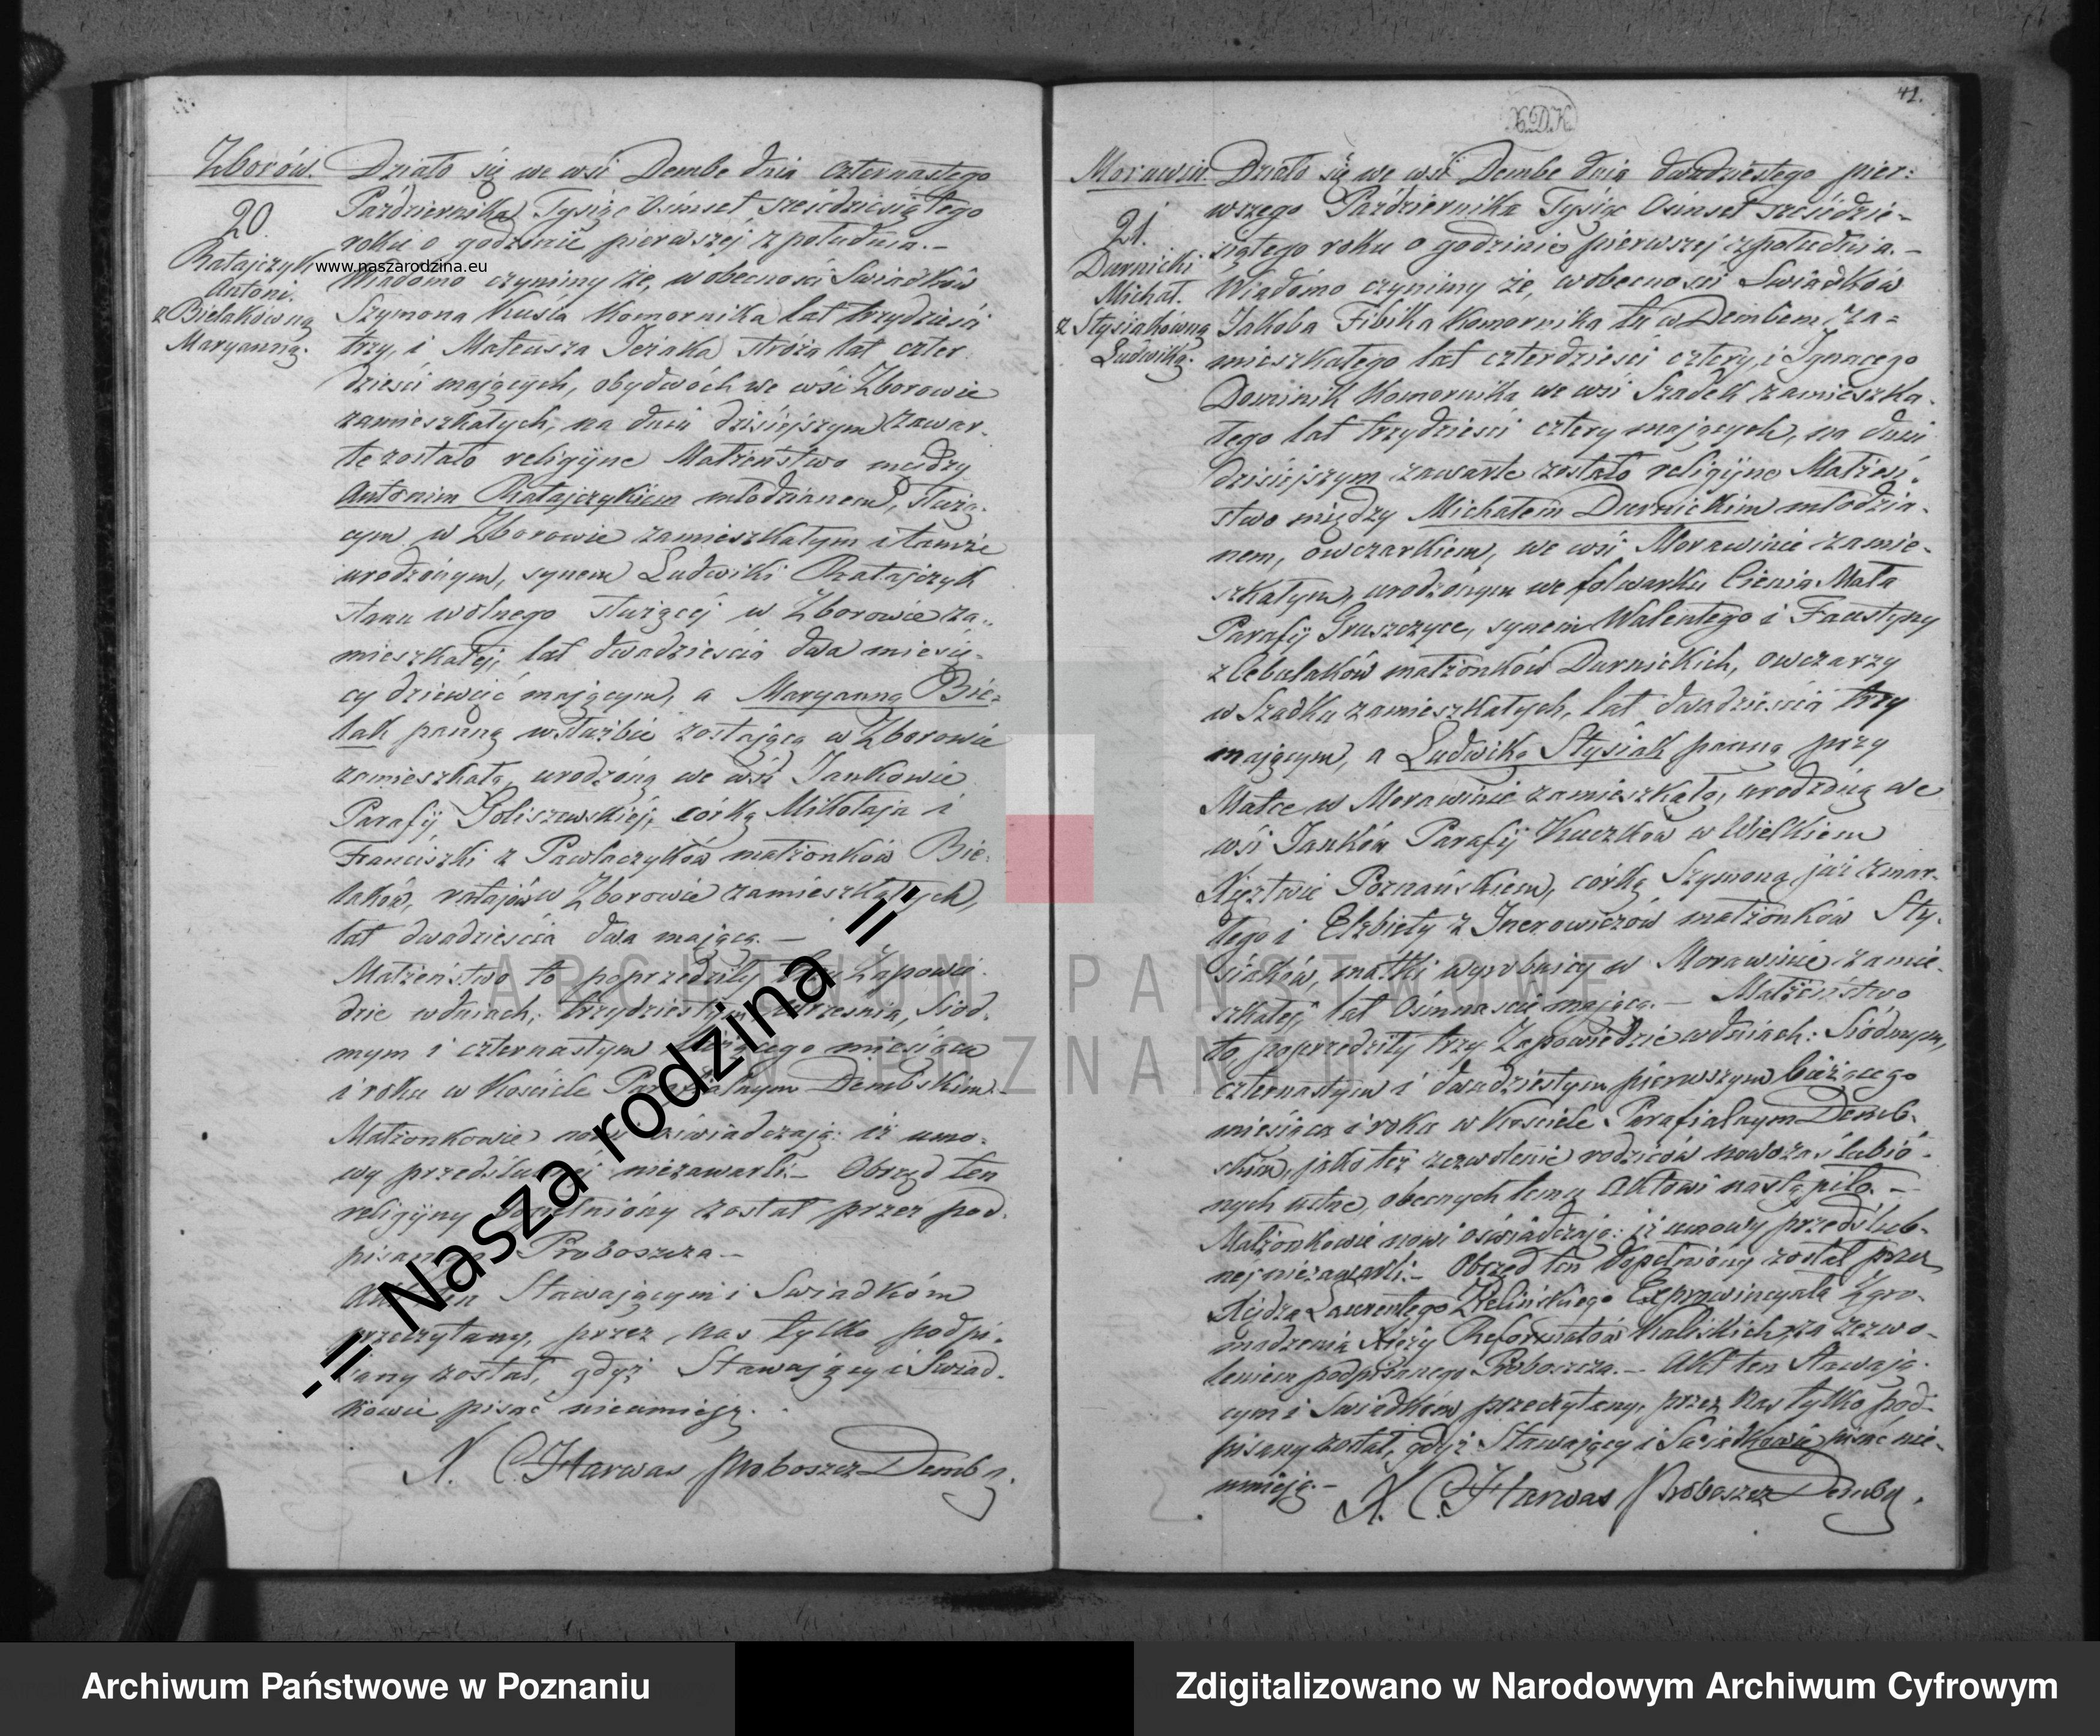 Zborów.
20
Ratajczyk
Antoni.
z Bielakówną
Maryanną.
Działo się we wsi Dembe dnia czternastego
Października Tysiąc Ośmset sześćdziesiątego
roku o godzinie pierwszej z południa. –
Wiadomo czynimy że, w obecności Swiadków
Szymona Kuśla Komornika lat trzydzieści
trzy, i Mateusza Jeziaka stróża lat czter
dzieści mających, obydwóch we wsi Zborowie
zamieszkałych, na dniu dzisiejszym zawar-
te zostało religijne Małżeństwo między
Antonim Ratajczykiem młodzianem, służą-
cym w Zborowie zamieszkałym i tamże
urodzonym, synem Ludwiki Ratajczyk
stanu wolnego służącéj w Zborowie za-
mieszkałej, lat dwadzieścia dwa miesię-
cy dziewięć mającym, a Maryanną Bie-
lak panną w służbie zostającą w Zborowie
zamieszkałą, urodzoną we wsi Jankowie
Parafij Goliszewskiéj, córką Mikołaja i
Franciszki z Pawlaczyków małżonków Bie-
laków, ratajów w Zborowie zamieszkałych,
lat dwadzieścia dwa mającą. –
Małżeństwo to poprzedziły trzy Zapowie-
dzie w dniach; trzydziestym Września, Siód-
mym i czternastym bieżącego miesiąca
i roku w Kościele Parafialnym Dembskim. –
Małżonkowie nowi oświadczają: iż umo-
wy przedślubnéj niezawarli. – Obrzęd ten
religijny dopełniony został przez pod-
pisanego Proboszcza –
Akt ten Stawającym i Swiadkóm
przeczytany, przez nas tylko podpi-
sany został, gdyż Stawający i Swiad-
kowie pisać nieumieją.
X. C. Harwas Proboszcz Demby.
www.naszarodzina.eu
-= Nasza rodzina =-
42.
X.D.K.
Morawin.
21.
Durnicki
Michał.
z Stysiakówną
Ludwiką.
Działo się we wsi Dembe dnia dwudziestego pier-
wszego Października Tysiąc Ośmset sześćdzie-
siątego roku o godzinie pierwszej z południa. –
Wiadomo czynimy że, w obecności Swiadków
Jakoba Fibika Komornika tu w Dembem za-
mieszkałego lat czterdzieści cztery, i Ignacego
Dominik Komornika we wsi Szadek zamieszka-
łego lat trzydzieści cztery mających, na dniu
dzisiejszym zawarte zostało religijne Małżeń-
stwo między Michałem Durnickim młodzia-
nem, owczarkiem, we wsi Morawinie zamie-
szkałym, urodzonym we folwarku Cienia Mała
Parafij Gruszczyce, synem Walentego i Faustyny
z Cebulaków małżonków Durnickich, owczarzy
w Szadku zamieszkałych, lat dwadzieścia trzy
mającym, a Ludwiką Stysiak panną przy
Matce w Morawinie zamieszkałą, urodzoną we
wsi Janków Parafij Kuczków w Wielkiem
Xięztwie Poznańskiem, córką Szymona już zmar-
łego i Elżbiety z Jnerowiczów małżonków Sty-
siaków, matki wyrobnicy w Morawinie zamie-
szkałej, lat Ośmnaście mającą. – Małżeństwo
to, poprzedziły trzy Zapowiedzie w dniach: Siódmym,
czternastym i dwudziestym pierwszym bieżącego
miesiąca i roku w Kościele Parafialnym Demb-
skim, jako też zezwolenie rodziców nowozaślubio-
nych ustne, obecnych temu Aktowi nastąpiło. –
Małżonkowie nowi oświadczają: iż umowy przedślub-
néj niezawarli. – Obrzęd ten dopełniony został przez
Xiędza Laurentego Zielińskiego Exprowincyała Zgro-
madzenia Xięży Reformatów Kaliskich, za zezwo-
leniem podpisanego Proboszcza. – Akt ten Stawają-
cym i Swiadków przeczytany, przez nas tylko pod-
pisany został, gdyż Stawający i Swiadkowie pisać nie-
umieją. –
X. C. Harwas Proboszcz Demby.
ARCHIWUM PAŃSTWOWE
W POZNANIU
Archiwum Państwowe w Poznaniu
Zdigitalizowano w Narodowym Archiwum Cyfrowym